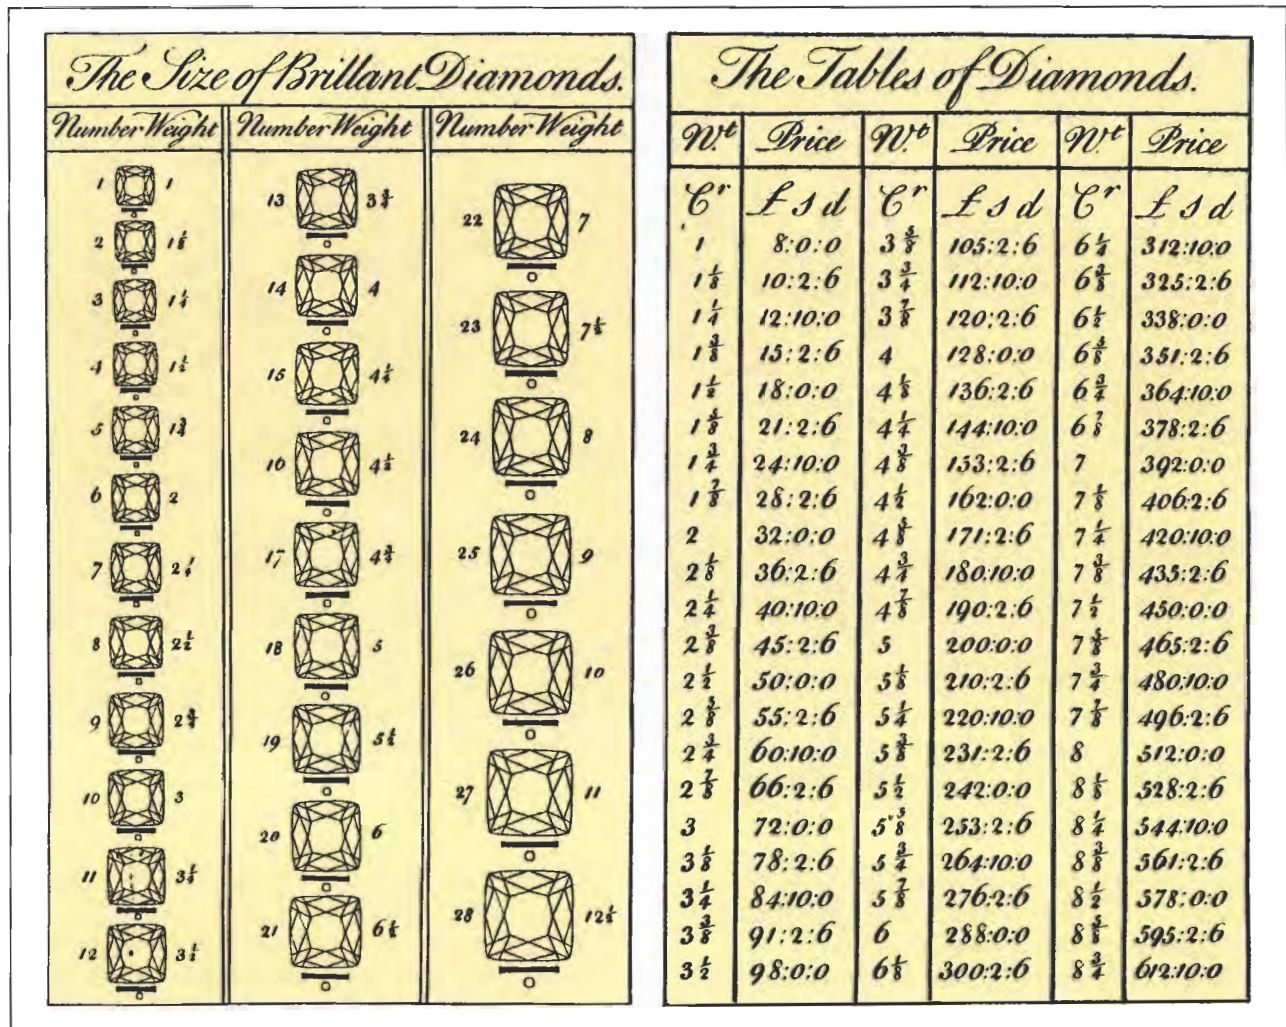 The Size of Brillant Diamonds.
Number Weight
1 1
2 1⅛
3 1¼
4 1½
5 1¾
6 2
7 2¼
8 2½
9 2¾
10 3
11 3¼
12 3½
Number Weight
13 3¾
14 4
15 4¼
16 4½
17 4¾
18 5
19 5½
20 6
21 6½
Number Weight
22 7
23 7½
24 8
25 9
26 10
27 11
28 12½
The Tables of Diamonds.
W.t Price W.t Price W.t Price
Cr £ s d Cr £ s d Cr £ s d
1 8:0:0 3⅝ 105:2:6 6¼ 312:10:0
1⅛ 10:2:6 3¾ 112:10:0 6⅜ 325:2:6
1¼ 12:10:0 3⅞ 120:2:6 6½ 338:0:0
1⅜ 15:2:6 4 128:0:0 6⅝ 351:2:6
1½ 18:0:0 4⅛ 136:2:6 6¾ 364:10:0
1⅝ 21:2:6 4¼ 144:10:0 6⅞ 378:2:6
1¾ 24:10:0 4⅜ 153:2:6 7 392:0:0
1⅞ 28:2:6 4½ 162:0:0 7⅛ 406:2:6
2 32:0:0 4⅝ 171:2:6 7¼ 420:10:0
2⅛ 36:2:6 4¾ 180:10:0 7⅜ 435:2:6
2¼ 40:10:0 4⅞ 190:2:6 7½ 450:0:0
2⅜ 45:2:6 5 200:0:0 7⅝ 465:2:6
2½ 50:0:0 5⅛ 210:2:6 7¾ 480:10:0
2⅝ 55:2:6 5¼ 220:10:0 7⅞ 496:2:6
2¾ 60:10:0 5⅜ 231:2:6 8 512:0:0
2⅞ 66:2:6 5½ 242:0:0 8⅛ 528:2:6
3 72:0:0 5⅝ 253:2:6 8¼ 544:10:0
3⅛ 78:2:6 5¾ 264:10:0 8⅜ 561:2:6
3¼ 84:10:0 5⅞ 276:2:6 8½ 578:0:0
3⅜ 91:2:6 6 288:0:0 8⅝ 595:2:6
3½ 98:0:0 6⅛ 300:2:6 8¾ 612:10:0